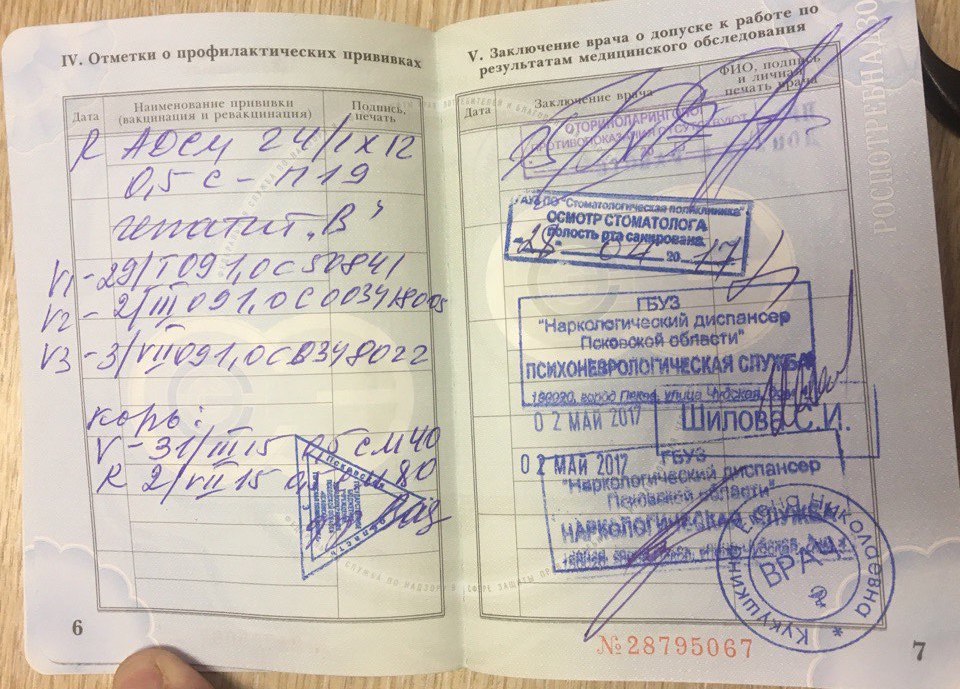 IV. Отметки о профилактических прививках
Дата
Наименование прививки
(вакцинация и ревакцинация)
Подпись,
печать
R АДСМ 24/IX 12
0,5 с-П19
гепатит „В"
V1-29/I 09 1,0 С50841
V2-2/III 09 1,0 С003418005
V3-3/VII 09 1,0 СВ348022
корь:
V-31/III 15 0,5 см40
R 2/VII 15 0,5
6
V. Заключение врача о допуске к работе по
результатам медицинского обследования
Дата
Заключение врача
ФИО, подпись
и личная
печать врача
ОТОРИНОЛАРИНГОЛОГ
ПРОТИВОПОКАЗАНИЯ ОТСУТСТВУЮТ
РОСПОТРЕБНАДЗО
ГАУЗ ПО "Стоматологическая поликлиника"
ОСМОТР СТОМАТОЛОГА
полость рта санирована
"28" 04 2017
ГБУЗ
"Наркологический диспансер
Псковской области"
ПСИХОНЕВРОЛОГИЧЕСКАЯ СЛУЖБА
02 МАЙ 2017
Шилова С.И.
02 МАЙ 2017
ГБУЗ
"Наркологический диспансер
Псковской области"
НАРКОЛОГИЧЕСКАЯ СЛУЖБА
ВРАЧ
НИКОЛАЕВНА
№28795067
7